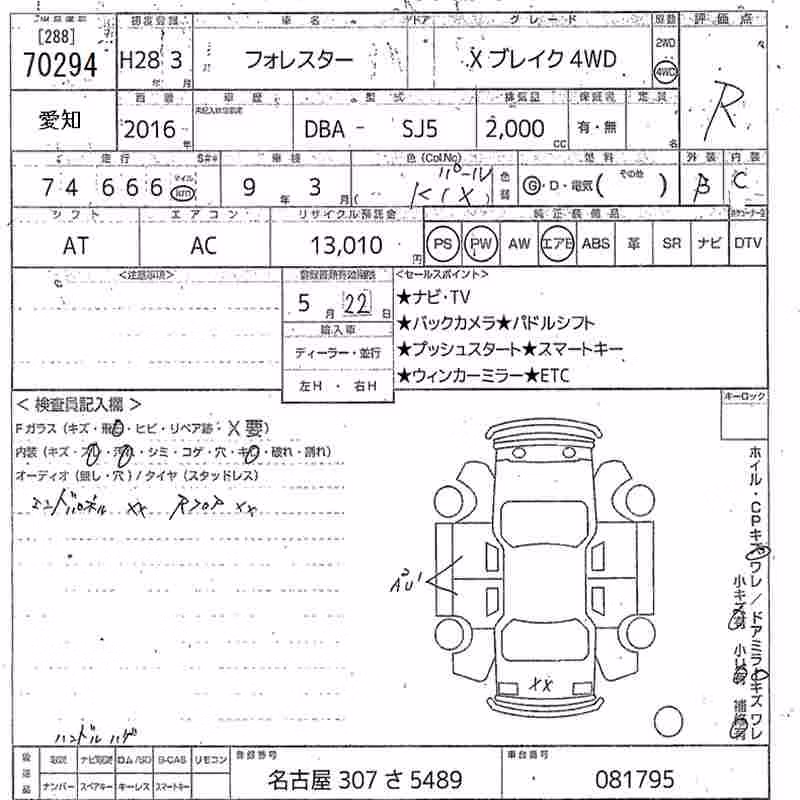 [288]
70294
初度登録
H28 年 3 月
車名
フォレスター
ドア
グレード
X ブレイク 4WD
2WD
4WD
評価点
R
愛知
西暦
2016 年
車歴
型式
DBA - SJ5
排気量
2,000 CC
保証書
有・無
定員
名
走行
74 666 マイル km
S##
車検
9 年 3 月
色 (Col.No)
パール
(K1X)
色替
燃料
G・D・電気( その他 )
外装
B
内装
C
シフト
AT
エアコン
AC
リサイクル預託金
13,010 円
純正装備品
PS PW AW エアB ABS 革 SR ナビ DTV
<注意事項>
5 月 22 日
輸入車
ディーラー・並行
左H ・ 右H
<セールスポイント>
★ナビ・TV
★バックカメラ★パドルシフト
★プッシュスタート★スマートキー
★ウィンカーミラー★ETC
< 検査員記入欄 >
Fガラス(キズ・飛石・ヒビ・リペア跡・X要)
内装(キズ・スレ・汚れ・シミ・コゲ・穴・キレ・破れ・割れ)
オーディオ(無し・穴)/タイヤ(スタッドレス)
エンドパネル XX Rフロア XX
キーロック
ホイル・CPキズワレ/ドアミラーキズワレ
小キズ有 小凹有 補修有
XX
ハンドルハゲ
取説 ナビ取説 ロム/SD B-CAS リモコン
ナンバー スペアキー キーレス スマートキー
登録番号
名古屋 307 さ 5489
車台番号
081795